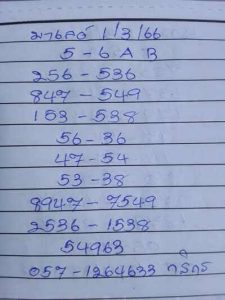 มาเลย์ 1/3/66
5 - 6 A B
256 - 536
847 - 549
153 - 538
56 - 36
47 - 54
53 - 38
8947 - 7549
2536 - 1538
54963
057 - 1264633